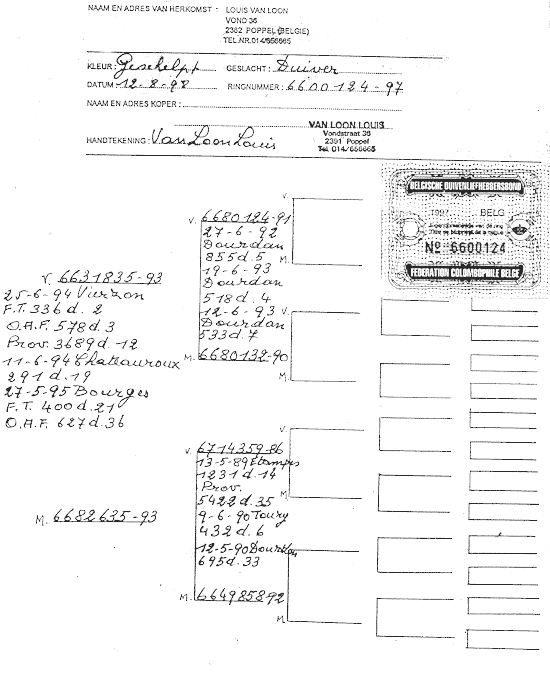 NAAM EN ADRES VAN HERKOMST : LOUIS VAN LOON
VOND 36
2382 POPPEL (BELGIE)
TEL.NR.014/656665
KLEUR: Geschelpt GESLACHT: Duiver
DATUM: 12-8-98 RINGNUMMER: 6600124-97
NAAM EN ADRES KOPER :
VAN LOON LOUIS
Vondstraat 36
2391 Poppel
Tel. 014/656665
HANDTEKENING: Van Loon Louis
BELGISCHE DUIVENLIEFHEBBERSBOND
1997 BELG
Nº 6600124
FEDERATION COLOMBOPHILE BELGE
V. 6631835-93
25-6-94 Vierzon
F.T. 336 d. 2
O.A.F. 578 d. 3
Prov. 3689 d. 12
11-6-94 Chateauroux
291 d. 19
27-5-95 Bourges
F.T. 400 d. 21
O.A.F. 627 d. 36
V. 6680124-91
27-6-92
Dourdan
855 d. 5
19-6-93
Dourdan
518 d. 4
12-6-93
Dourdan
533 d. 7
M. 6680132-90
V.
M.
V.
M.
M. 6682635-93
V. 6714359-86
13-5-89 Etampes
1231 d. 14
Prov.
5422 d. 35
9-6-90 Toury
432 d. 6
12-5-90 Dourdan
695 d. 33
M. 664985892
V.
M.
V.
M.